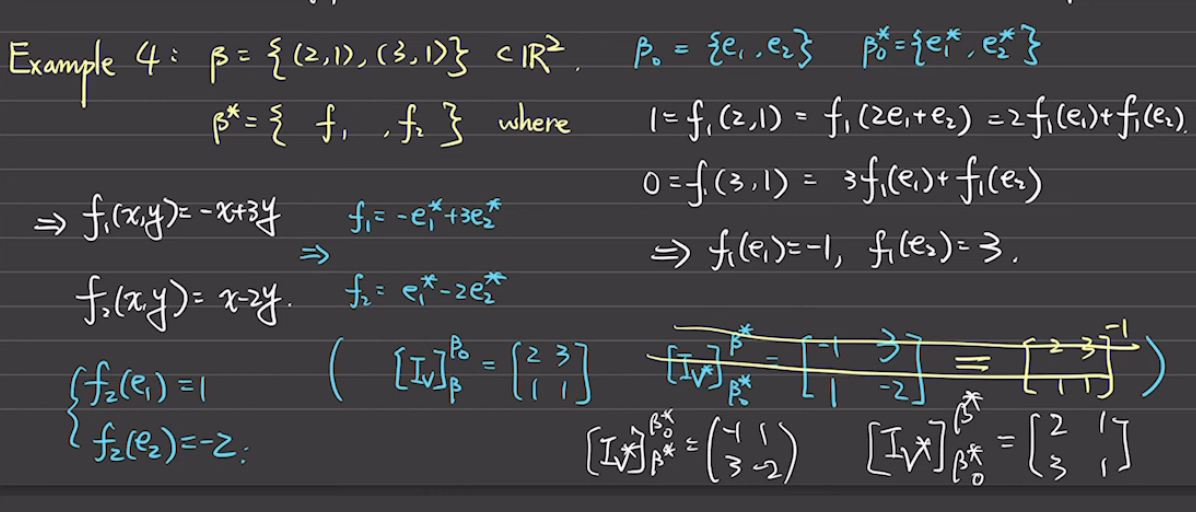 Example 4: β = {(2,1), (3,1)} ⊂ ℝ². β₀ = {e₁, e₂} β₀* = {e₁*, e₂*}
β* = { f₁ , f₂ } where 1 = f₁(2,1) = f₁(2e₁+e₂) = 2f₁(e₁)+f₁(e₂).
0 = f₁(3,1) = 3f₁(e₁)+f₁(e₂)
⇒ f₁(x,y) = -x+3y ⇒ f₁ = -e₁*+3e₂* ⇒ f₁(e₁)=-1, f₁(e₂)=3.
f₂(x,y) = x-2y. f₂ = e₁*-2e₂*
{ f₂(e₁)=1 ( [I_V]_β^β₀ = [2 3; 1 1] [I_V*]_β₀*^β* = [-1 3; 1 -2] = [2 3; 1 1]⁻¹ )
f₂(e₂)=-2. [I_V*]_β*^β₀* = (-1 1; 3 -2) [I_V*]_β₀*^β* = [2 1; 3 1]